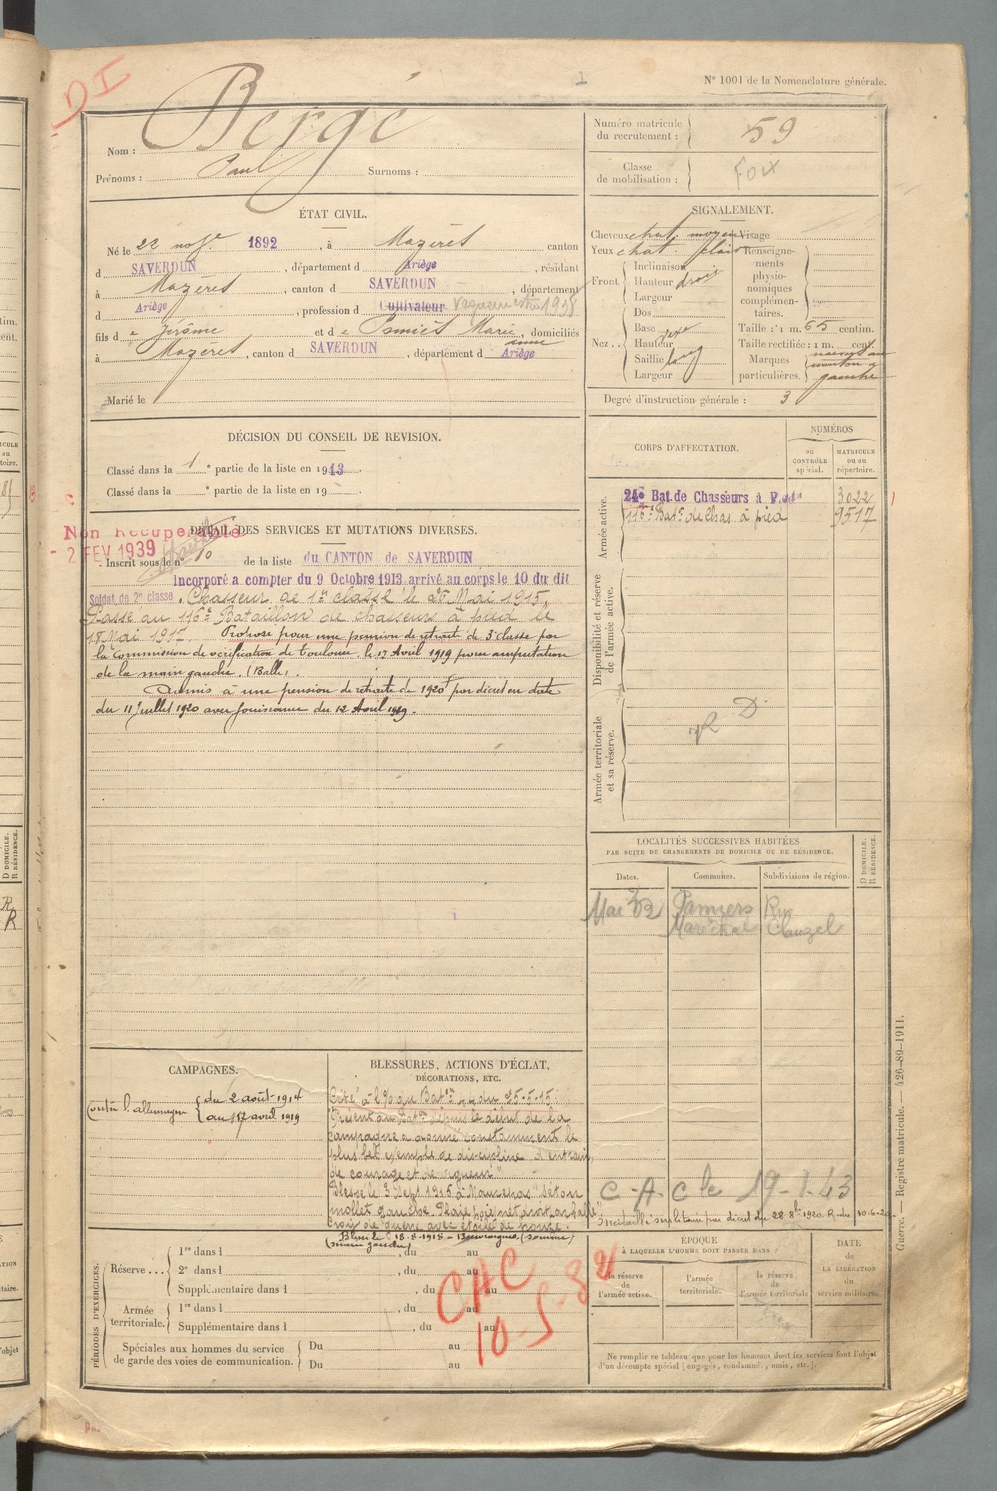 DI
N° 1001 de la Nomenclature générale.
Nom : Bergé
Prénoms : Paul Surnoms :
Numéro matricule du recrutement : 59
Classe de mobilisation : Foix
ÉTAT CIVIL.
Né le 22 1892, à Mazères canton
d SAVERDUN, département d Ariège, résidant
à Mazères, canton d SAVERDUN, département
d Ariège, profession d Cultivateur 1938
fils de Jérôme et de Marie anne, domiciliés
à Mazères, canton d SAVERDUN, département d Ariège
Marié le
SIGNALEMENT.
Cheveux chat. moyen Visage
Yeux chat.
Front. Inclinaison
Hauteur droit
Largeur
Nez .. Dos
Base
Hauteur
Saillie long
Largeur
Renseignements physionomiques complémentaires.
Taille : 1 m. 65 centim.
Taille rectifiée : 1 m. cent.
Marques particulières. gauche
Degré d'instruction générale : 3
DÉCISION DU CONSEIL DE REVISION.
Classé dans la 1e partie de la liste en 1913.
Classé dans la e partie de la liste en 19
Non Récupérable
- 2 FEV 1939
DÉTAIL DES SERVICES ET MUTATIONS DIVERSES.
Inscrit sous le n° 10 de la liste du CANTON de SAVERDUN
Incorporé à compter du 9 Octobre 1913 arrivé au corps le 10 du dit
Soldat de 2e classe. Chasseur de 1re classe le 26 Mai 1915.
Passé au 116e Bataillon de chasseurs à pied le
18 Mai 1917. Proposé pour une pension de retraite de 3e classe par
la commission de vérification de Toulouse, le 17 Avril 1919 pour amputation
de la main gauche. (Balle).
Admis à une pension de retraite de 1920f par décret en date
du 11 Juillet 1920 avec jouissance du 12 Avril 1919.
CORPS D'AFFECTATION.
NUMÉROS
au CONTRÔLE spécial.
MATRICULE ou au répertoire.
Armée active.
24e Bat. de Chasseurs à 3022
116e Bat. de chas. à pied 9517
Disponibilité et réserve de l'armée active.
Armée territoriale et sa réserve.
LOCALITÉS SUCCESSIVES HABITÉES
PAR SUITE DE CHANGEMENTS DE DOMICILE OU DE RÉSIDENCE.
Dates. Communes. Subdivisions de région. D DOMICILE. R RÉSIDENCE.
Mai 32 Pamiers Rue
Maréchal Clauzel
CAMPAGNES.
Contre l'allemagne du 2 août 1914
au 17 avril 1919
BLESSURES, ACTIONS D'ÉCLAT,
DÉCORATIONS, ETC.
Cité à l'o au Bat. du 25-5-15.
Présent au Bat. depuis le début de la
campagne a donné constamment le
plus bel exemple de discipline d'entrain
de courage et de vigueur"
Blessé le 3 Sept. 1915 à séton
mollet gauche.
croix de guerre avec étoile de bronze.
Blessé le 18-8-1918 (somme)
(main gauche)
C-A-C le 19-1-43
médaille militaire par décret du 28 1920.
PÉRIODES D'EXERCICES.
Réserve ... 1re dans l , du au
2e dans l , du au
Supplémentaire dans l , du au
Armée territoriale. 1re dans l , du au
Supplémentaire dans l , du au
Spéciales aux hommes du service de garde des voies de communication. Du au
Du au
CAC
10-5-82
ÉPOQUE
À LAQUELLE L'HOMME DOIT PASSER DANS :
la réserve de l'armée active.
l'armée territoriale.
la réserve de l'armée territoriale
DATE DE LA LIBÉRATION du service militaire.
Ne remplir ce tableau que pour les hommes dont les services font l'objet
d'un décompte spécial (engagés, condamnés, omis, etc.).
Guerre. — Registre matricule. — 426-89-1911.